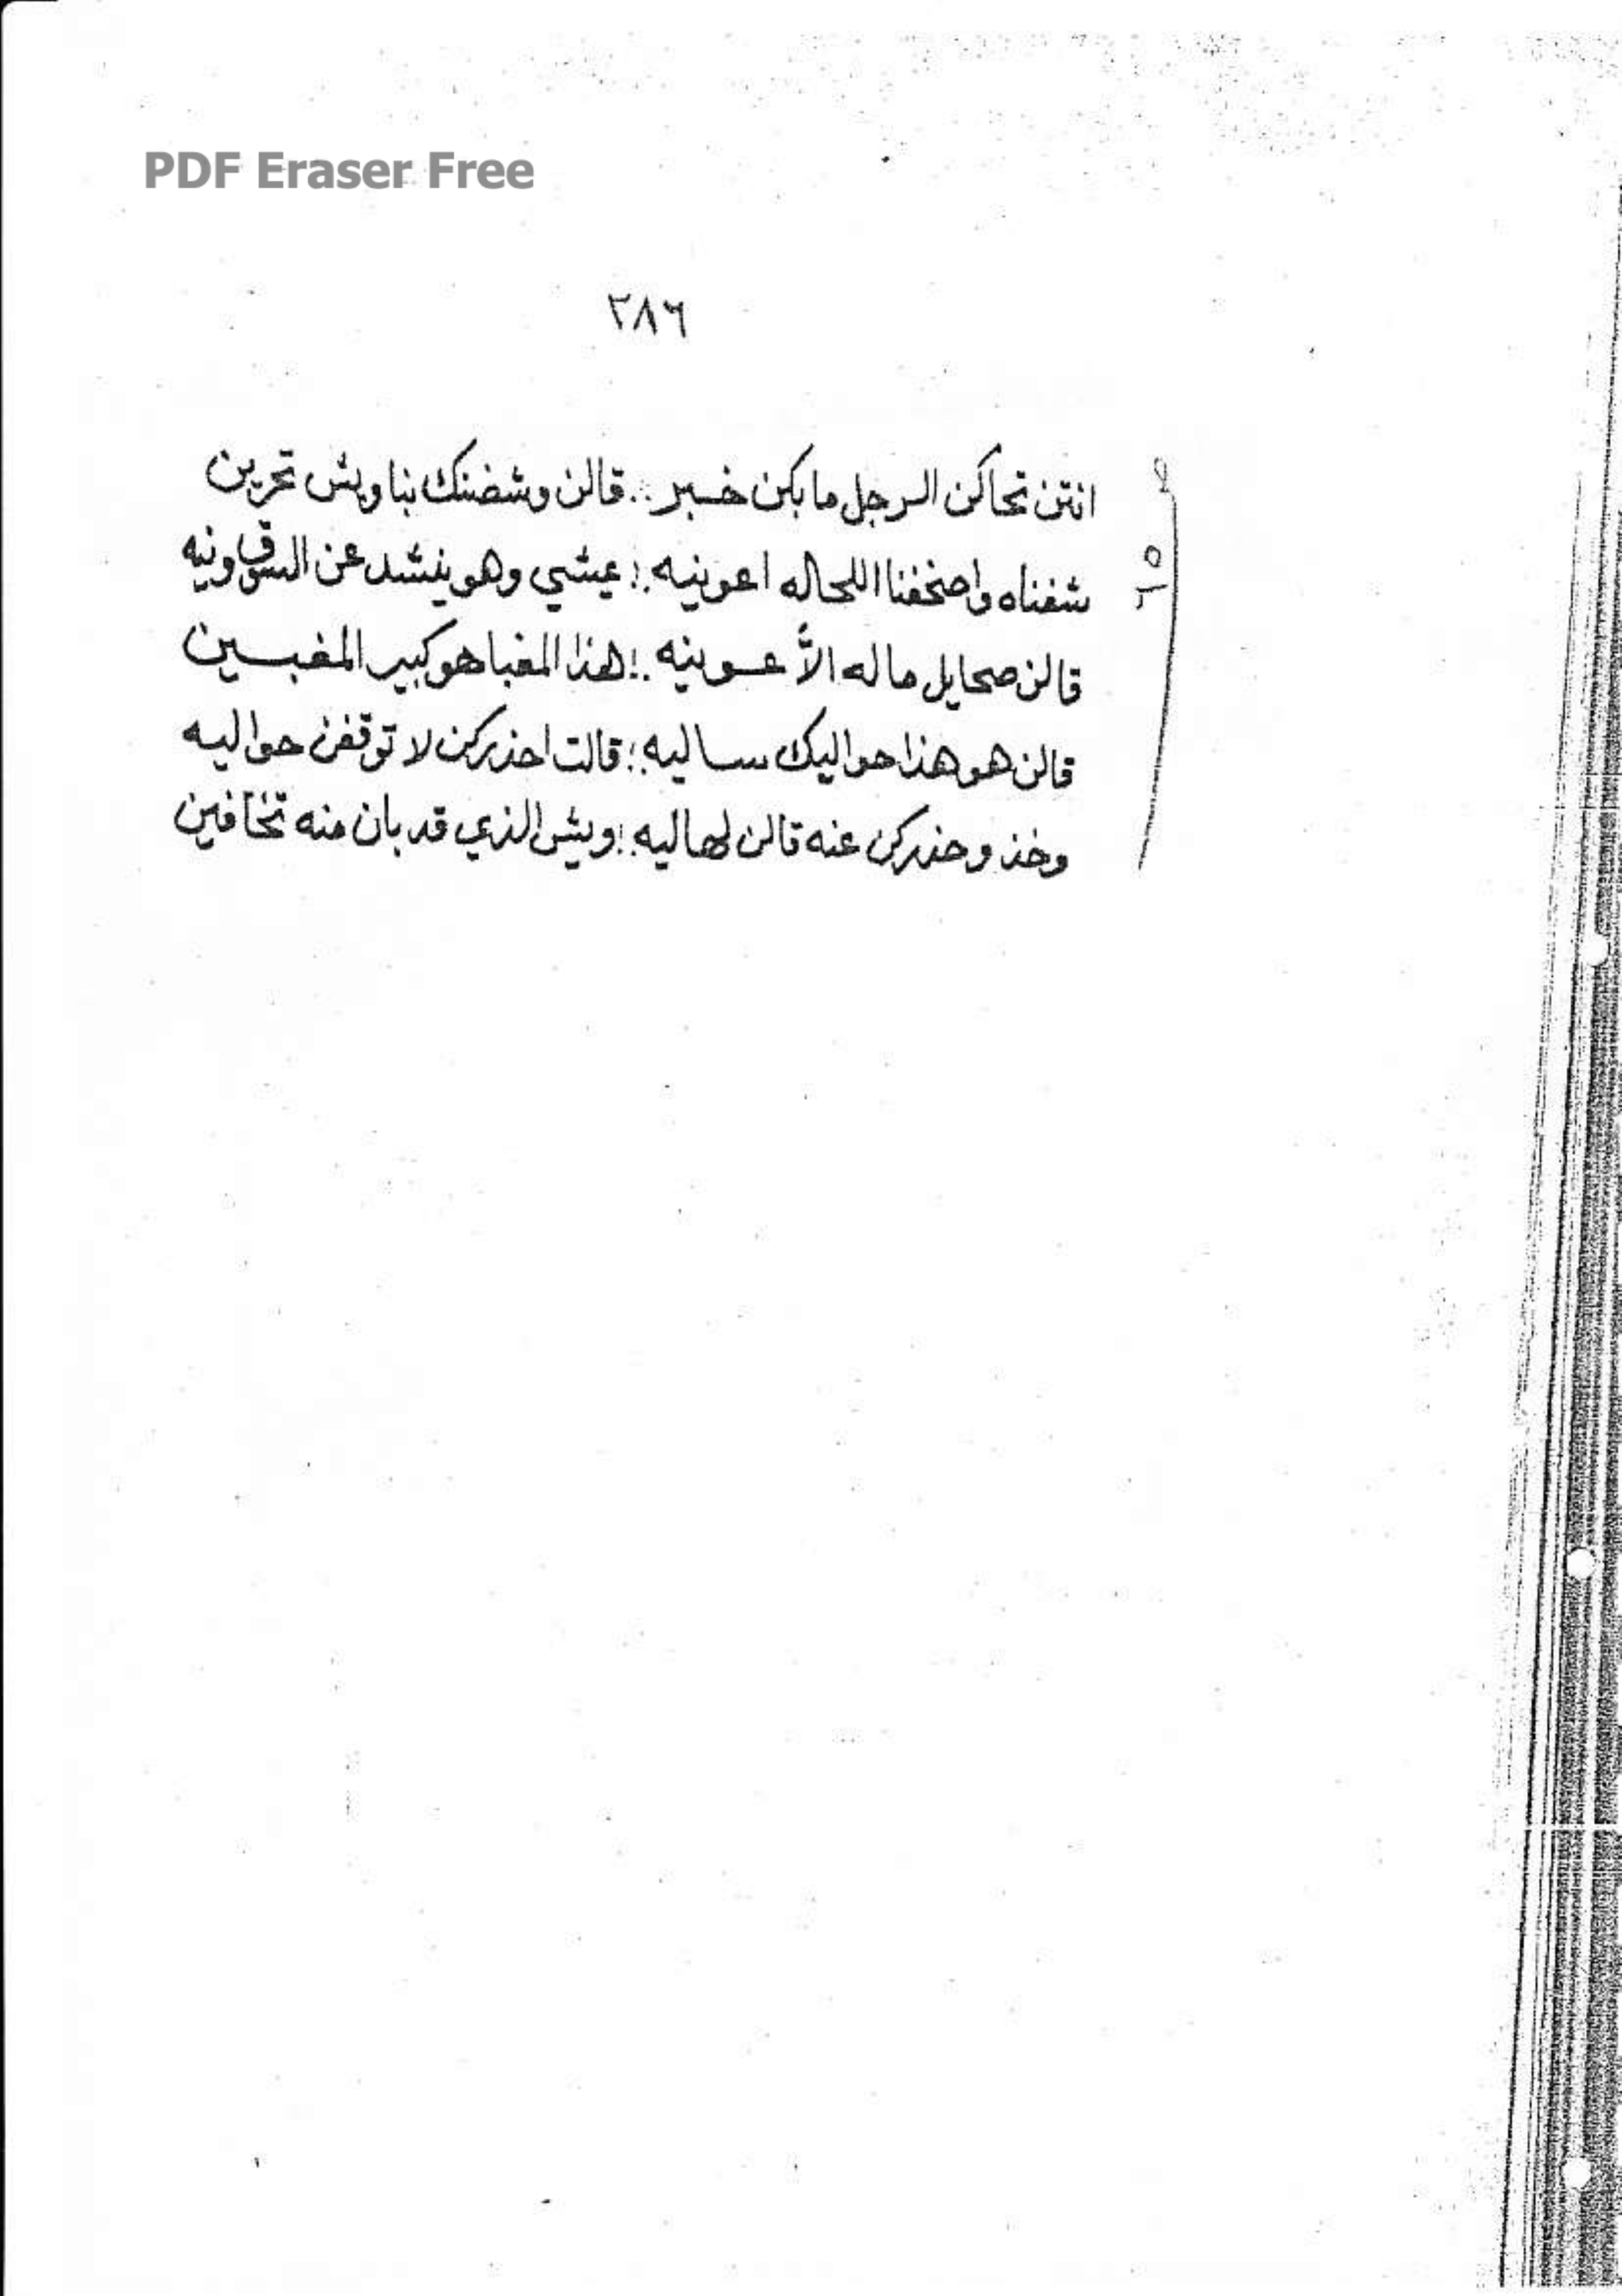 PDF Eraser Free
٢٨٦
انتن تحاكن الرجل ما بكن خير .. قالن وشضنك بنا ويش تحرين
شفناه واضحفنا اللحاله اعوينيه .! عيشي وهو ينشد عن السوق ونيه
قالن صحايل ماله الاَّ عوينيه .! هذا المغبا هو كبير المغبين
قالن هو هذا حواليك ساليه .! قالت احذركن لا توقفن حواليه
وخذ وحذركن عنه قالن لها ليه .! ويش الذي قد بان منه تخافين